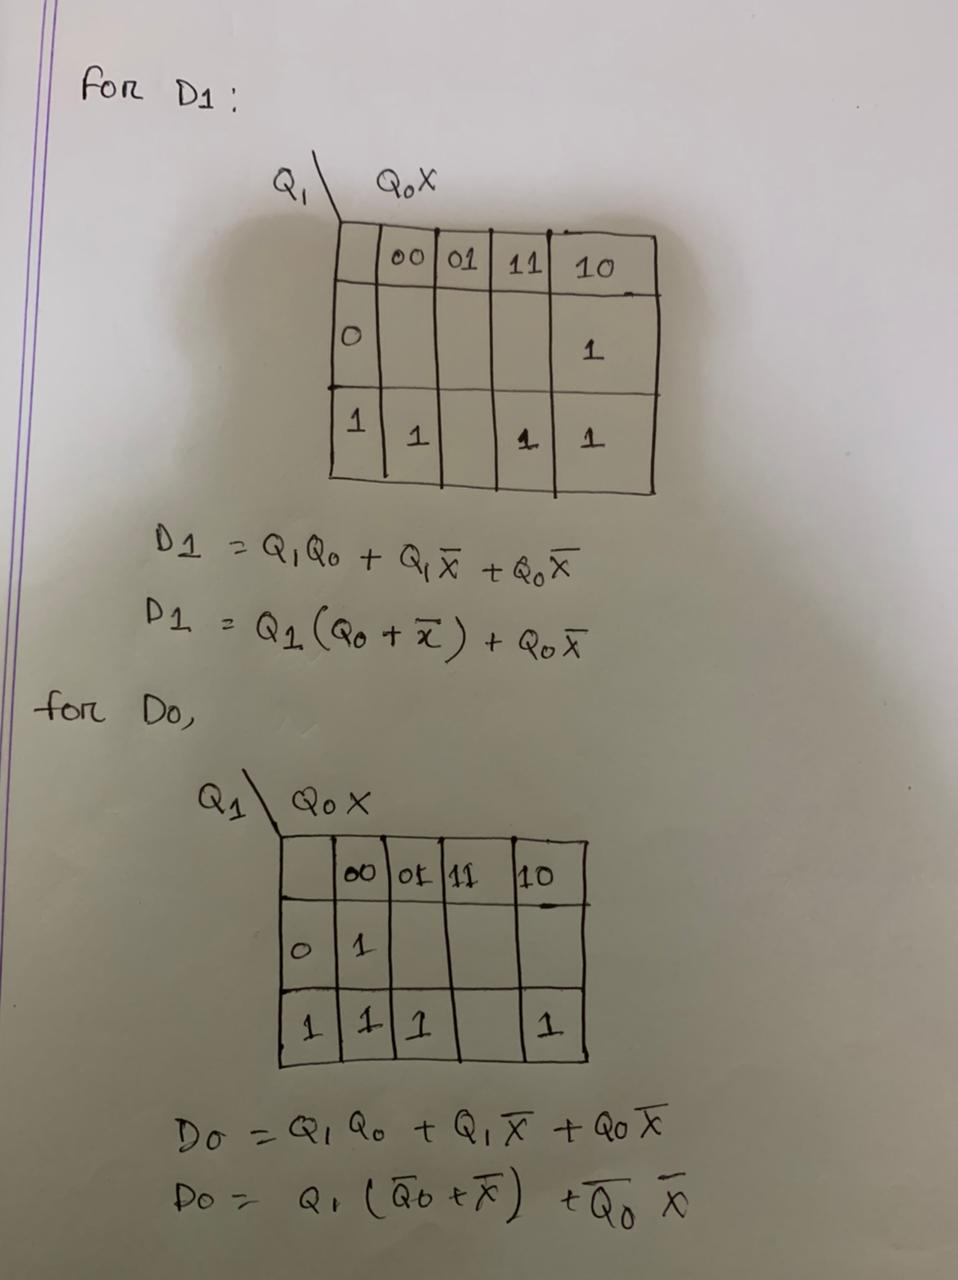 For D1:
Q1 \ Q0X
00 01 11 10
0 1
1 1 1 1
D1 = Q1Q0 + Q1X̅ + Q0X̅
D1 = Q1(Q0 + x̅) + Q0X̅
for D0,
Q1 \ Q0X
00 01 11 10
0 1
1 1 1 1
D0 = Q1Q0 + Q1X̅ + Q0X̅
D0 = Q1(Q̅0 + X̅) + Q̅0 X̅